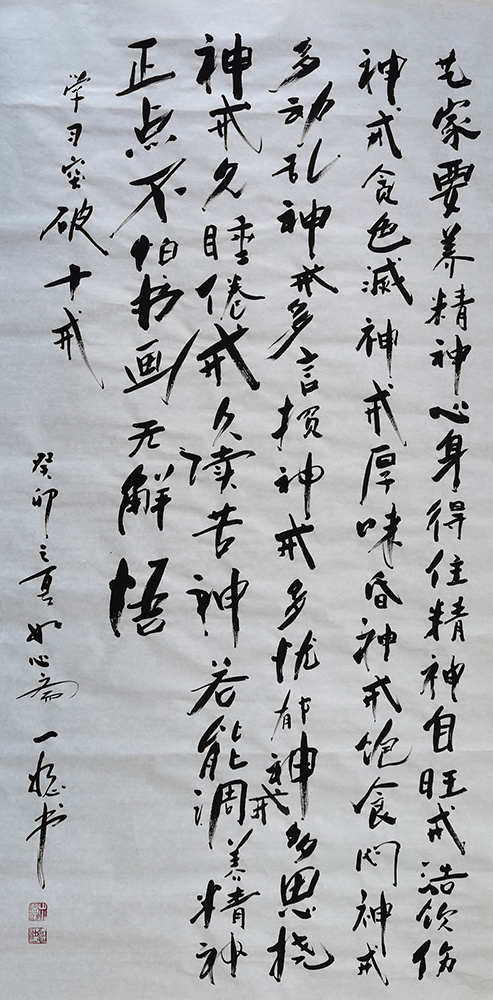 艺家要养精神心身得住精神自旺戒浩饮伤
神戒贪色滅神戒厚味昏神戒饱食闷神戒
多动乱神戒多言损神戒多忧郁神戒多思挠
神戒久睡倦戒久读苦神若能调养精神
正点不怕书画无解悟
学习突破十戒
癸卯之夏如心斋一烟书